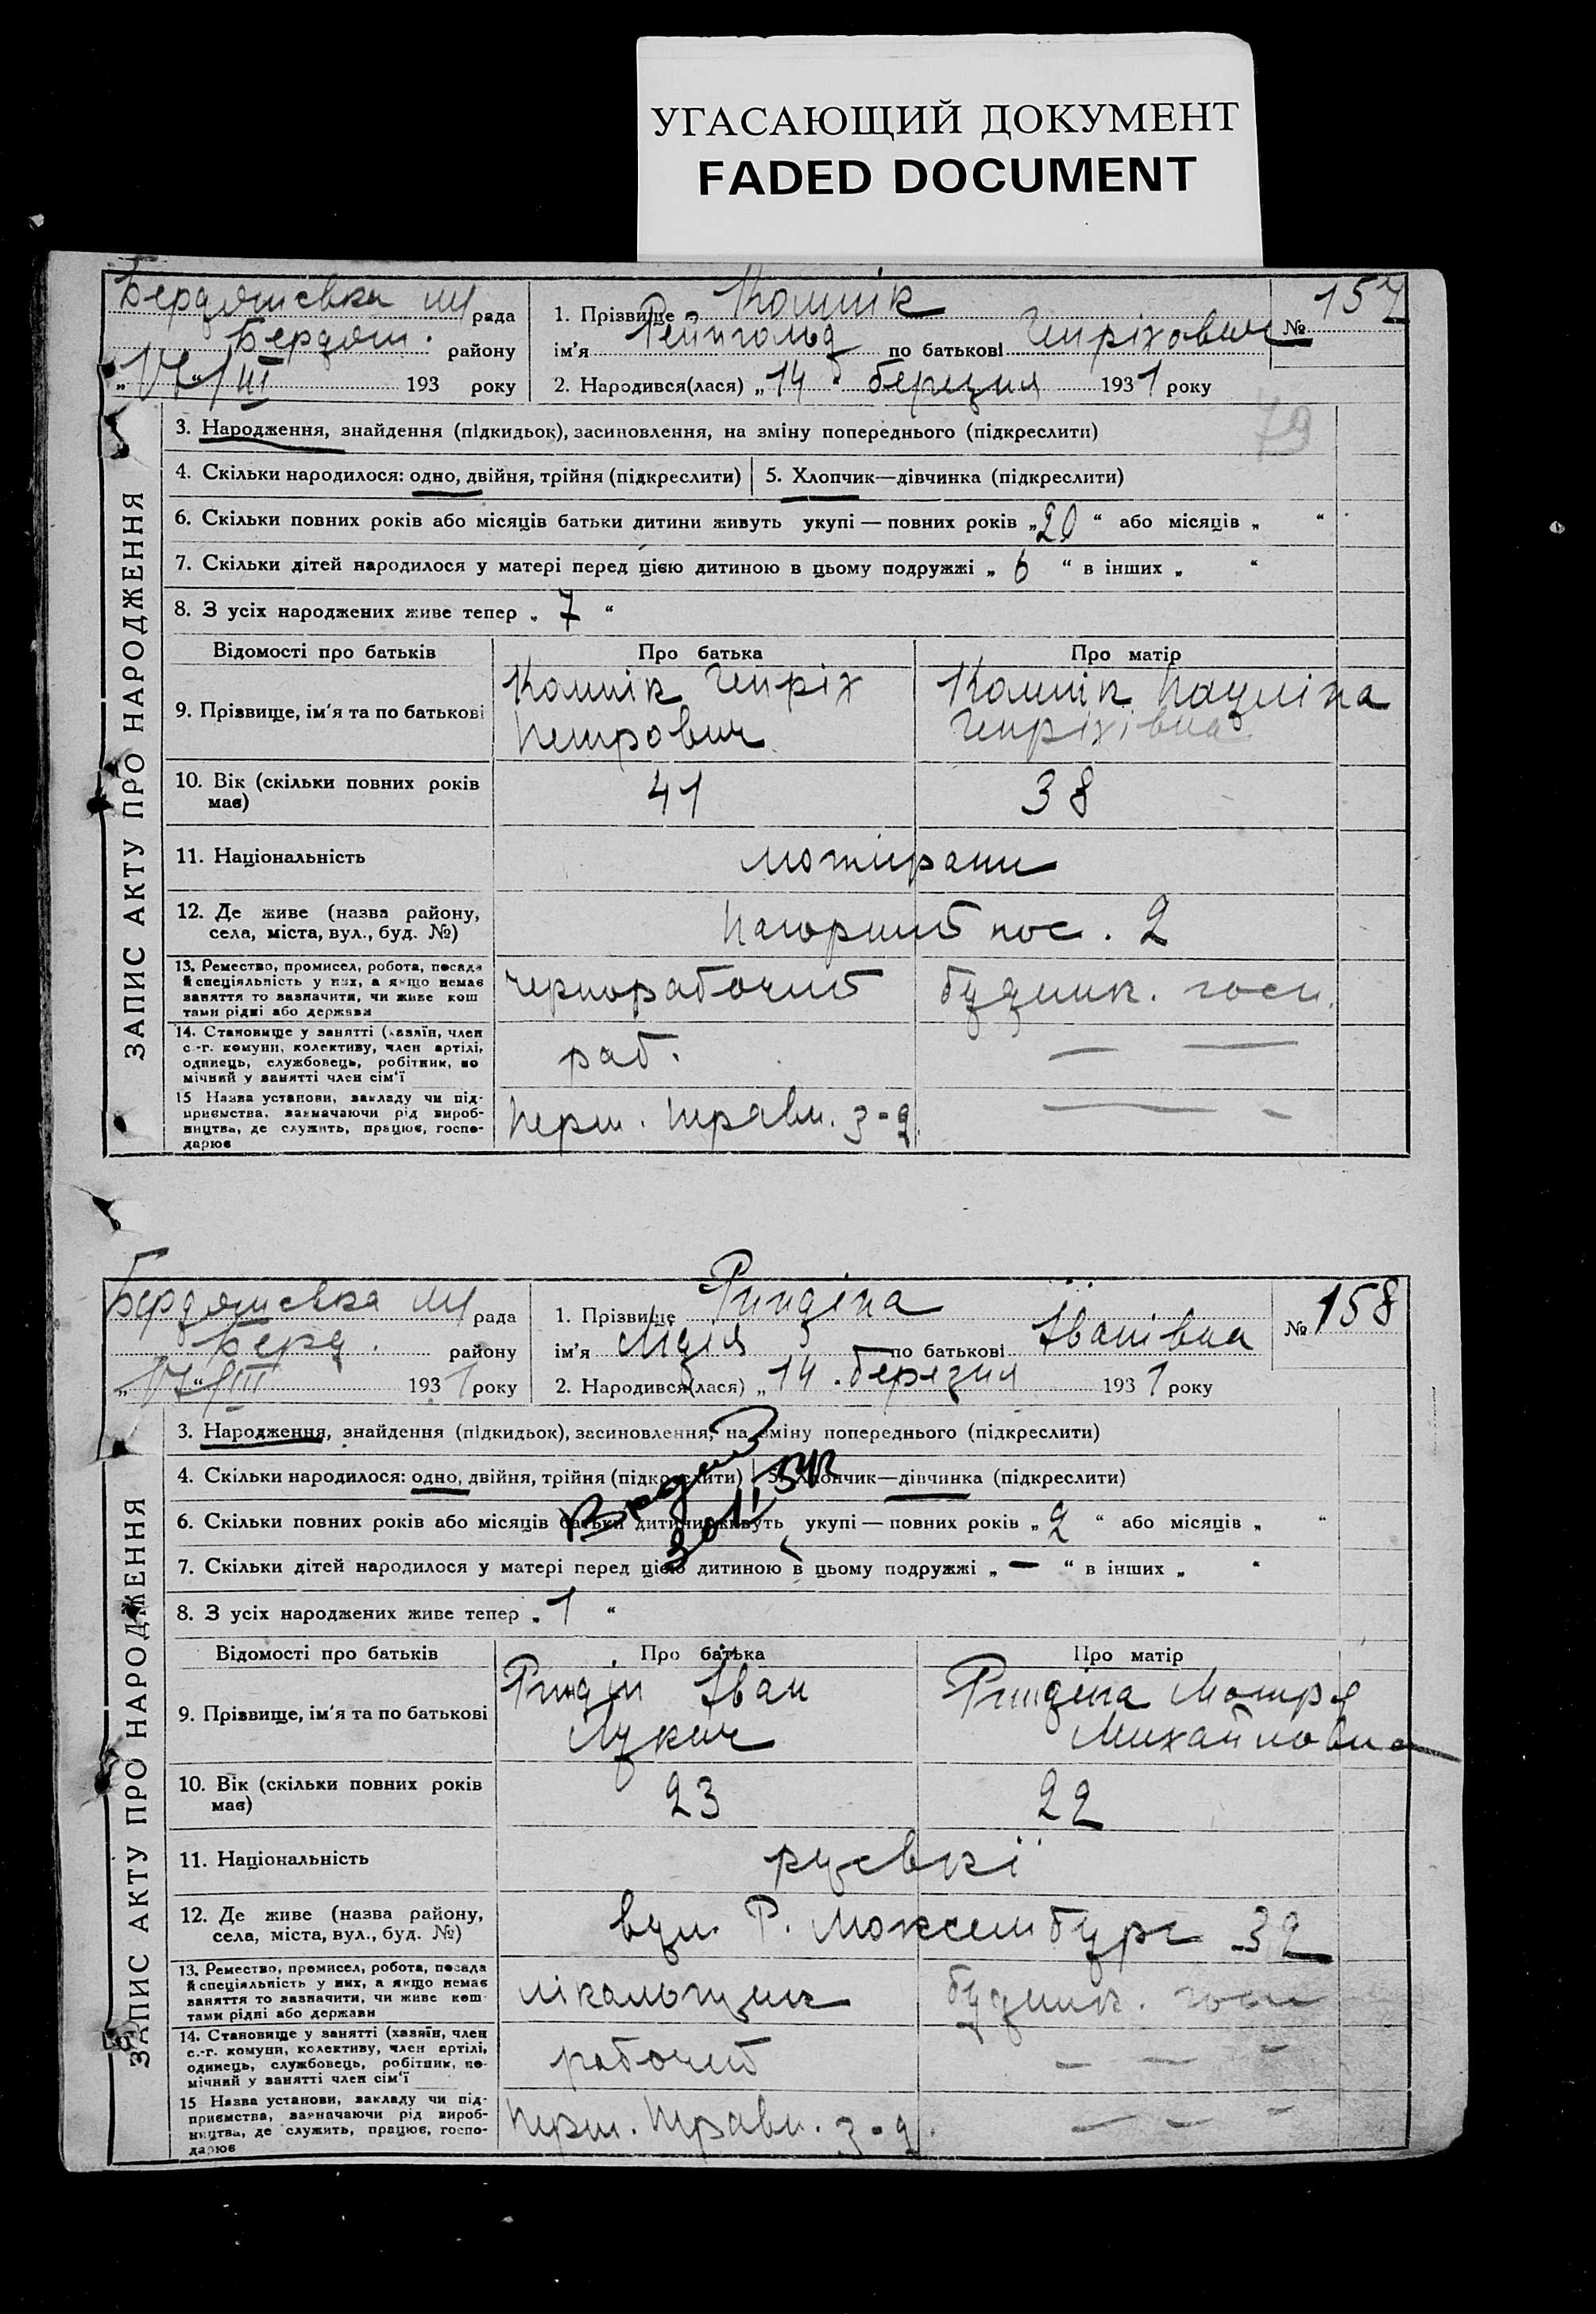 УГАСАЮЩИЙ ДОКУМЕНТ
FADED DOCUMENT
рада
Бердян. району
"17" III 193 року
1. Прізвище
ім'я Рейнгольд по батькові Генріхович
2. Народився(лася) „14" березня 1931 року
№ 157
79
ЗАПИС АКТУ ПРО НАРОДЖЕННЯ
3. Народження, знайдення (підкидьок), засиновлення, на зміну попереднього (підкреслити)
4. Скільки народилося: одно, двійня, трійня (підкреслити) 5. Хлопчик—дівчинка (підкреслити)
6. Скільки повних років або місяців батьки дитини живуть укупі — повних років „20" або місяців „ "
7. Скільки дітей народилося у матері перед цією дитиною в цьому подружжі „ 6 " в інших „ "
8. З усіх народжених живе тепер „ 7 "
Відомості про батьків Про батька Про матір
9. Прізвище, ім'я та по батькові
Генріх
Петрович
Пауліна
Генріхівна
10. Вік (скільки повних років має) 41 38
11. Національність
12. Де живе (назва району, села, міста, вул., буд. №)
Нагорний пос. 2
13. Ремество, промисел, робота, посада й спеціяльність у них, а якщо немає заняття то зазначити, чи живе коштами рідні або держави
чернорабочий
будинк. госп.
14. Становище у занятті (хазяїн, член с.-г. комуни, колективу, член артілі, одинець, службовець, робітник, помічний у занятті член сім'ї
раб. — —
15 Назва установи, закладу чи підприємства, зазначаючи рід виробництва, де служить, працює, господарює
Перш. Травн. з-д. — -
рада
Берд. району
„17" III 1931 року
1. Прізвище Риндіна
ім'я Лідія по батькові Іванівна
2. Народився(лася) „14. березня 1931 року
№ 158
ЗАПИС АКТУ ПРО НАРОДЖЕННЯ
3. Народження, знайдення (підкидьок), засиновлення, на зміну попереднього (підкреслити)
4. Скільки народилося: одно, двійня, трійня (підкреслити) 5. Хлопчик—дівчинка (підкреслити)
6. Скільки повних років або місяців батьки дитини живуть укупі — повних років „ 2 " або місяців „ "
7. Скільки дітей народилося у матері перед цією дитиною в цьому подружжі „ — " в інших „ "
8. З усіх народжених живе тепер „ 1 "
Відомості про батьків Про батька Про матір
9. Прізвище, ім'я та по батькові
Риндін Іван
Лукич
Риндіна Мотря
Михайловна
10. Вік (скільки повних років має) 23 22
11. Національність
руські
12. Де живе (назва району, села, міста, вул., буд. №)
вул. Р. Люксембург 32
13. Ремество, промисел, робота, посада й спеціяльність у них, а якщо немає заняття то зазначити, чи живе коштами рідні або держави
будинк. госп
14. Становище у занятті (хазяїн, член с.-г. комуни, колективу, член артілі, одинець, службовець, робітник, помічний у занятті член сім'ї
рабочий — — -
15 Назва установи, закладу чи підприємства, зазначаючи рід виробництва, де служить, працює, господарює
Перш. Травн. з-д. — — -